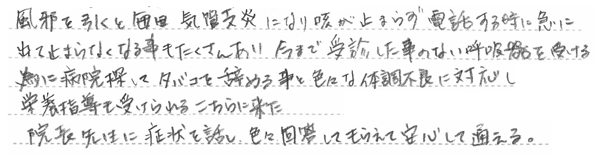 風邪を引くと毎回気管支炎になり咳が止まらず電話する時に急に
出て止まらなくなる事もたくさんあり今まで受診した事のない呼吸器を受ける
為に病院探してタバコを辞める事と色々な体調不良に対応し
栄養指導も受けられるこちらに来た
院長先生に症状を話し色々回答してもらえて安心して通える。